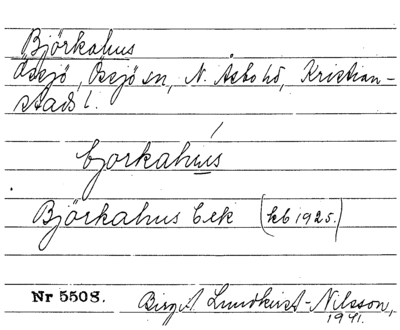 Björkahus
Össjö, Össjö sn, N. Åsbo hd, Kristian-
stads l.
bjorkahús
Björkahus Eek (kb 1925.)
Nr 5508. Birgit Lundkvist-Nilsson,
1941.